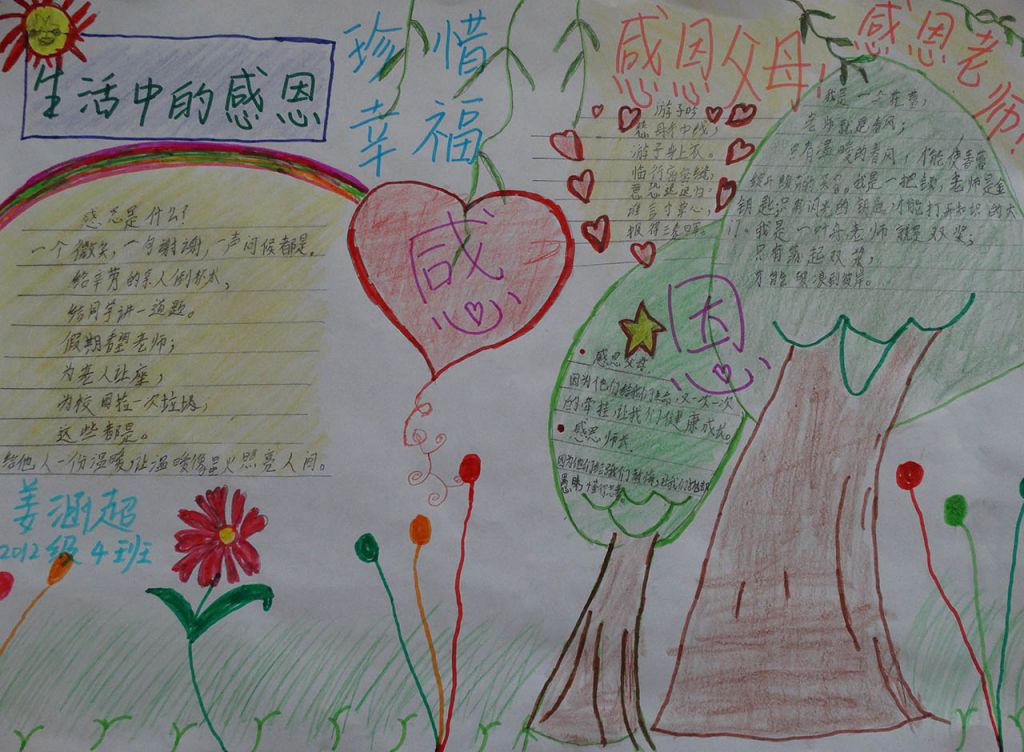 生活中的感恩
珍惜
幸福
感恩父母!
感恩老师!
感恩是什么?
一个微笑,一句谢谢,一声问候都是。
给辛劳的亲人倒杯水,
给同学讲一道题。
假期看望老师;
为老人让座,
为校园捡一次垃圾,
这些都是。
给他人一份温暖,让温暖像星火照亮人间。
姜涵超
2012级4班
感
恩
游子吟
慈母手中线,
游子身上衣。
临行密密缝,
意恐迟迟归。
谁言寸草心,
报得三春晖。
我是一个花蕾,
老师就是春风;
只有温暖的春风,才能使蓓蕾
我是一把锁,老师是金
钥匙;只有闪光的钥匙,才能打开知识的大
门。我是一叶舟,老师就是双桨;
只有荡起双桨,
才能 到彼岸。
感恩父母
因为他们给我们生命,又一次一次
的牵挂,让我们健康成长。
感恩师长